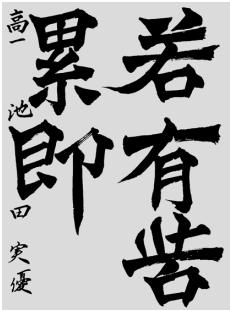 若有呰
累即
高一 池田 実優